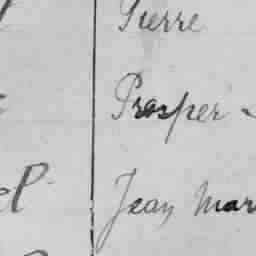 Pierre
Prosper
Jean Mar